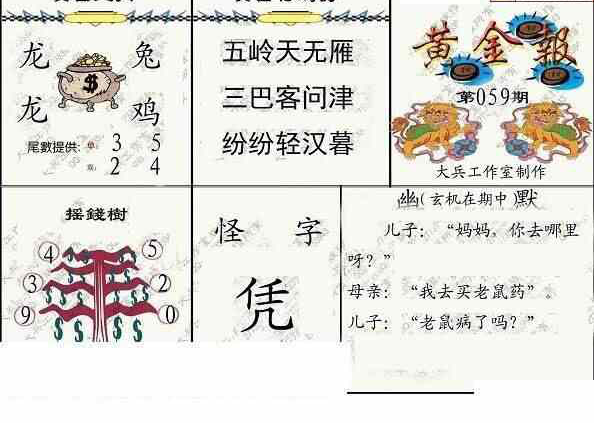 龙 兔
龙 鸡
$
尾數提供: 单: 3 5
双: 2 4
五岭天无雁
三巴客问津
纷纷轻汉暮
黄金報
第059期
大兵工作室制作
摇錢樹
4 5
3 2
9 0
$ $ $ $ $ $
怪 字
凭
幽(玄机在期中)默
儿子：“妈妈，你去哪里
呀？”
母亲：“我去买老鼠药”。
儿子：“老鼠病了吗？”